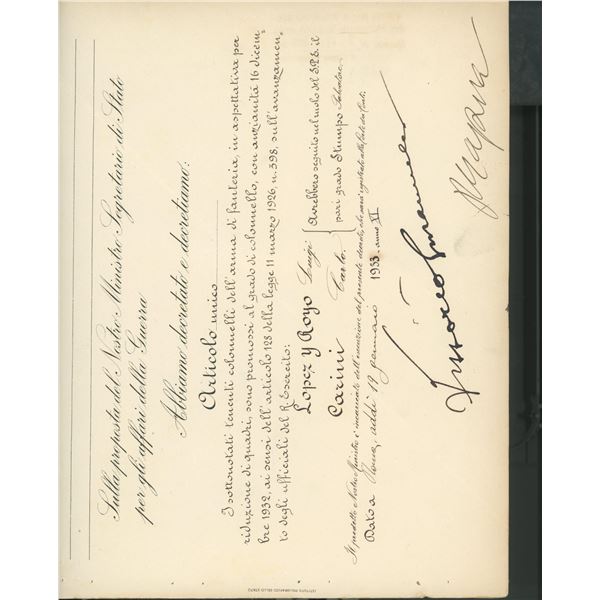 Sulla proposta del Nostro Ministro Segretario di Stato
per gli affari della Guerra
Abbiamo decretato e decretiamo:
Articolo unico
I sottonotati tenenti colonnelli dell'arma di fanteria, in aspettativa per
riduzione di quadri, sono promossi al grado di colonnello, con anzianità 16 dicem=
bre 1932, ai sensi dell'articolo 128 della legge 11 marzo 1926, n. 398, sull'avanzamen=
to degli ufficiali del R. Esercito:
Lopez y Royo Luigi
Carini Carlo
Avrebbero seguito nel ruolo del S.P.E. il
pari grado Stumpo Salvatore.
Il predetto Nostro Ministro è incaricato dell'esecuzione del presente decreto, che sarà registrato alla Corte dei Conti.
Dato a Roma, addì 19 gennaio 1933 anno XI
Vittorio Emanuele
ISTITUTO POLIGRAFICO DELLO STATO